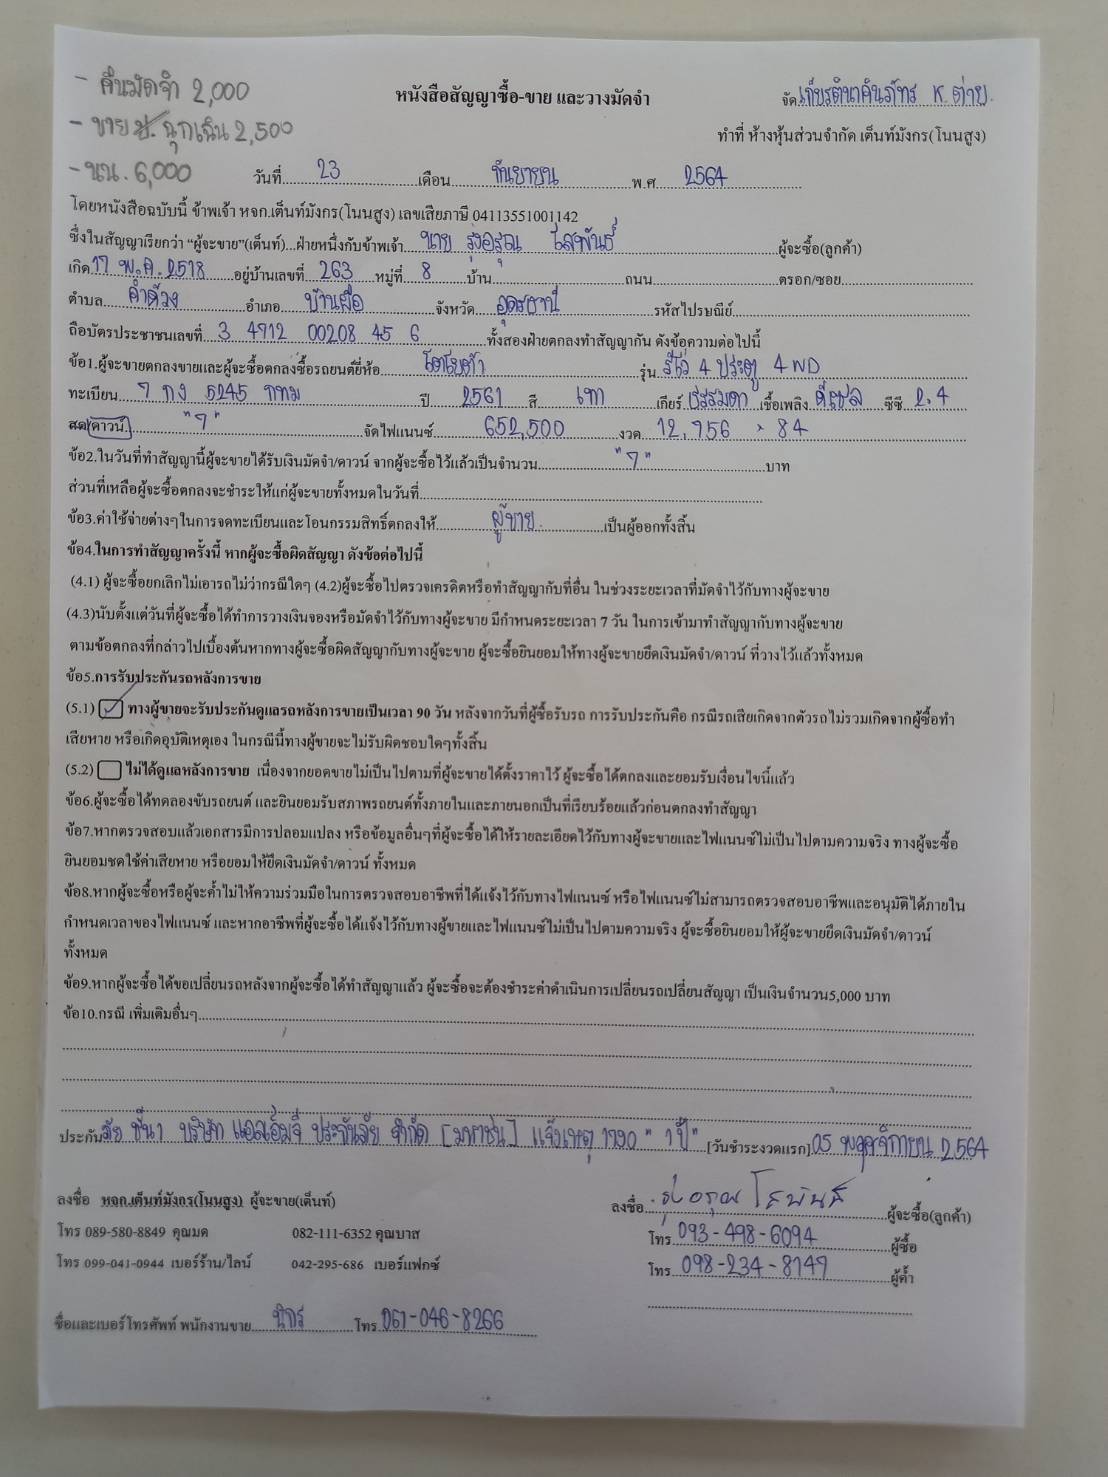 - คืนมัดจำ 2,000
- ขาย ป. ฉุกเฉิน 2,500
- นน. 6,000
หนังสือสัญญาซื้อ-ขาย และวางมัดจำ
จัด เกียรตินาคินภัทร K. ต่าย.
ทำที่ ห้างหุ้นส่วนจำกัด เต็นท์มังกร(โนนสูง)
วันที่ 23 เดือน กันยายน พ.ศ 2564
โดยหนังสือฉบับนี้ ข้าพเจ้า หจก.เต็นท์มังกร(โนนสูง) เลขเสียภาษี 04113551001142
ซึ่งในสัญญาเรียกว่า "ผู้จะขาย"(เต็นท์)...ฝ่ายหนึ่งกับข้าพเจ้า นาย รุ่งอรุณ ไสพันธ์ ผู้จะซื้อ(ลูกค้า)
เกิด 17 พ.ค. 2518 อยู่บ้านเลขที่ 263 หมู่ที่ 8 บ้าน ถนน ตรอก/ซอย
ตำบล คำด้วง อำเภอ บ้านผือ จังหวัด อุดรธานี รหัสไปรษณีย์
ถือบัตรประชาชนเลขที่ 3 4712 00208 45 6 ทั้งสองฝ่ายตกลงทำสัญญากัน ดังข้อความต่อไปนี้
ข้อ1.ผู้จะขายตกลงขายและผู้จะซื้อตกลงซื้อรถยนต์ยี่ห้อ โตโยต้า รุ่น รีโว่ 4 ประตู 4WD
ทะเบียน 7 กง 5245 กทม ปี 2561 สี เทา เกียร์ ธรรมดา เชื้อเพลิง ดีเซล ซีซี 2.4
สด/ดาวน์ "7" จัดไฟแนนซ์ 652,500 งวด 12,956 × 84
ข้อ2.ในวันที่ทำสัญญานี้ผู้จะขายได้รับเงินมัดจำ/ดาวน์ จากผู้จะซื้อไว้แล้วเป็นจำนวน "7" บาท
ส่วนที่เหลือผู้จะซื้อตกลงจะชำระให้แก่ผู้จะขายทั้งหมดในวันที่
ข้อ3.ค่าใช้จ่ายต่างๆในการจดทะเบียนและโอนกรรมสิทธิ์ตกลงให้ ผู้ขาย เป็นผู้ออกทั้งสิ้น
ข้อ4.ในการทำสัญญาครั้งนี้ หากผู้จะซื้อผิดสัญญา ดังข้อต่อไปนี้
(4.1) ผู้จะซื้อยกเลิกไม่เอารถไม่ว่ากรณีใดๆ (4.2)ผู้จะซื้อไปตรวจเครดิตหรือทำสัญญากับที่อื่น ในช่วงระยะเวลาที่มัดจำไว้กับทางผู้จะขาย
(4.3)นับตั้งแต่วันที่ผู้จะซื้อได้ทำการวางเงินจองหรือมัดจำไว้กับทางผู้จะขาย มีกำหนดระยะเวลา 7 วัน ในการเข้ามาทำสัญญากับทางผู้จะขาย
ตามข้อตกลงที่กล่าวไปเบื้องต้นหากทางผู้จะซื้อผิดสัญญากับทางผู้จะขาย ผู้จะซื้อยินยอมให้ทางผู้จะขายยึดเงินมัดจำ/ดาวน์ ที่วางไว้แล้วทั้งหมด
ข้อ5.การรับประกันรถหลังการขาย
(5.1) ✓ ทางผู้ขายจะรับประกันดูแลรถหลังการขายเป็นเวลา 90 วัน หลังจากวันที่ผู้ซื้อรับรถ การรับประกันคือ กรณีรถเสียเกิดจากตัวรถไม่รวมเกิดจากผู้ซื้อทำ
เสียหาย หรือเกิดอุบัติเหตุเอง ในกรณีนี้ทางผู้ขายจะไม่รับผิดชอบใดๆทั้งสิ้น
(5.2) ไม่ได้ดูแลหลังการขาย เนื่องจากยอดขายไม่เป็นไปตามที่ผู้จะขายได้ตั้งราคาไว้ ผู้จะซื้อได้ตกลงและยอมรับเงื่อนไขนี้แล้ว
ข้อ6.ผู้จะซื้อได้ทดลองขับรถยนต์ และยินยอมรับสภาพรถยนต์ทั้งภายในและภายนอกเป็นที่เรียบร้อยแล้วก่อนตกลงทำสัญญา
ข้อ7.หากตรวจสอบแล้วเอกสารมีการปลอมแปลง หรือข้อมูลอื่นๆที่ผู้จะซื้อได้ให้รายละเอียดไว้กับทางผู้จะขายและไฟแนนซ์ไม่เป็นไปตามความจริง ทางผู้จะซื้อ
ยินยอมชดใช้ค่าเสียหาย หรือยอมให้ยึดเงินมัดจำ/ดาวน์ ทั้งหมด
ข้อ8.หากผู้จะซื้อหรือผู้จะค้ำไม่ให้ความร่วมมือในการตรวจสอบอาชีพที่ได้แจ้งไว้กับทางไฟแนนซ์ หรือไฟแนนซ์ไม่สามารถตรวจสอบอาชีพและอนุมัติได้ภายใน
กำหนดเวลาของไฟแนนซ์ และหากอาชีพที่ผู้จะซื้อได้แจ้งไว้กับทางผู้ขายและไฟแนนซ์ไม่เป็นไปตามความจริง ผู้จะซื้อยินยอมให้ผู้จะขายยึดเงินมัดจำ/ดาวน์
ทั้งหมด
ข้อ9.หากผู้จะซื้อได้ขอเปลี่ยนรถหลังจากผู้จะซื้อได้ทำสัญญาแล้ว ผู้จะซื้อจะต้องชำระค่าดำเนินการเปลี่ยนรถเปลี่ยนสัญญา เป็นเงินจำนวน5,000 บาท
ข้อ10.กรณี เพิ่มเติมอื่นๆ
ประกันภัย ชั้น 1 บริษัท แอลเอ็มจี ประกันภัย จำกัด [มหาชน] แจ้งเหตุ 1790 "1 ปี" [วันชำระงวดแรก] 05 พฤศจิกายน 2564
ลงชื่อ หจก.เต็นท์มังกร(โนนสูง) ผู้จะขาย(เต็นท์)
ลงชื่อ รุ่งอรุณ ไสพันธ์ ผู้จะซื้อ(ลูกค้า)
โทร 089-580-8849 คุณมด 082-111-6352 คุณบาส
โทร 093-498-6094 ผู้ซื้อ
โทร 099-041-0944 เบอร์ร้าน/ไลน์ 042-295-686 เบอร์แฟกซ์
โทร 098-234-8149 ผู้ค้ำ
ชื่อและเบอร์โทรศัพท์ พนักงานขาย นิกร โทร 061-046-8266